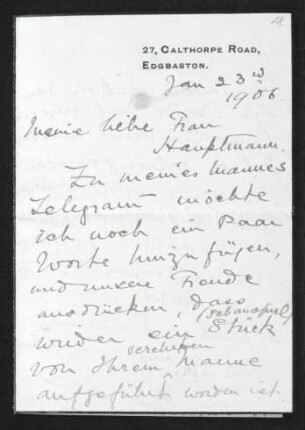 27, CALTHORPE ROAD,
EDGBASTON.
Jan 23rd
1906.
Meine liebe Frau
Hauptmann.
Zu meines Mannes
Telegram möchte
ich noch ein Paar
Worte hinzufügen,
und unsere Freude
ausdrücken, dass
wieder ein (Schauspiel) Stück
von Ihrem verehrten Manne
aufgeführt worden ist